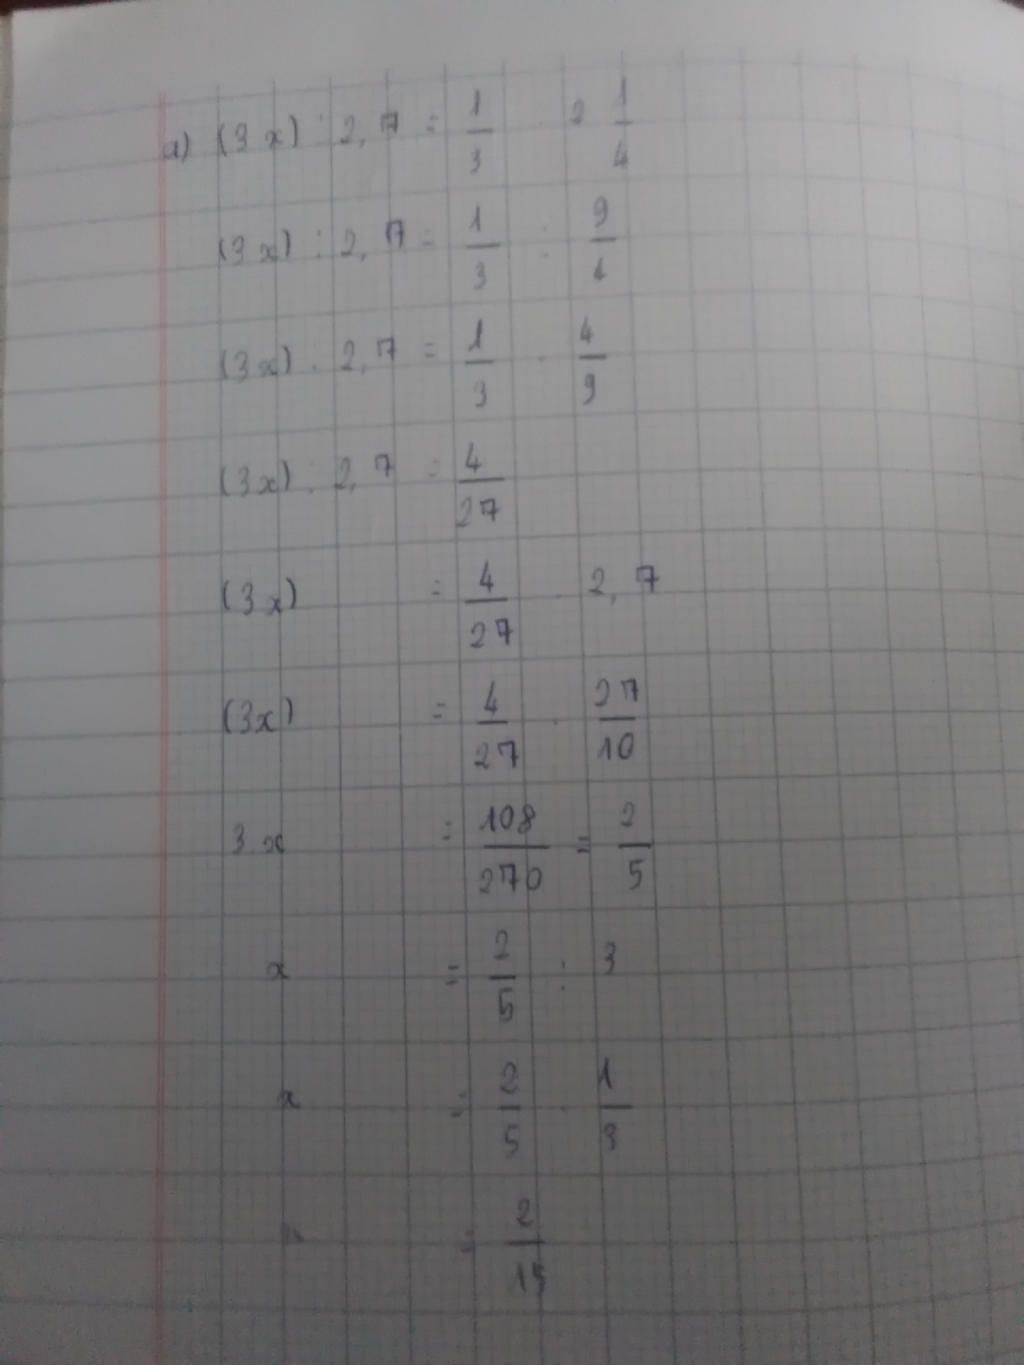 a) (3x) : 2,7 = 1/3 : 2 1/4
(3x) : 2,7 = 1/3 : 9/4
(3x) : 2,7 = 1/3 . 4/9
(3x) : 2,7 = 4/27
(3x) = 4/27 . 2,7
(3x) = 4/27 . 27/10
3x = 108/270 = 2/5
x = 2/5 : 3
x = 2/5 . 1/3
x = 2/15